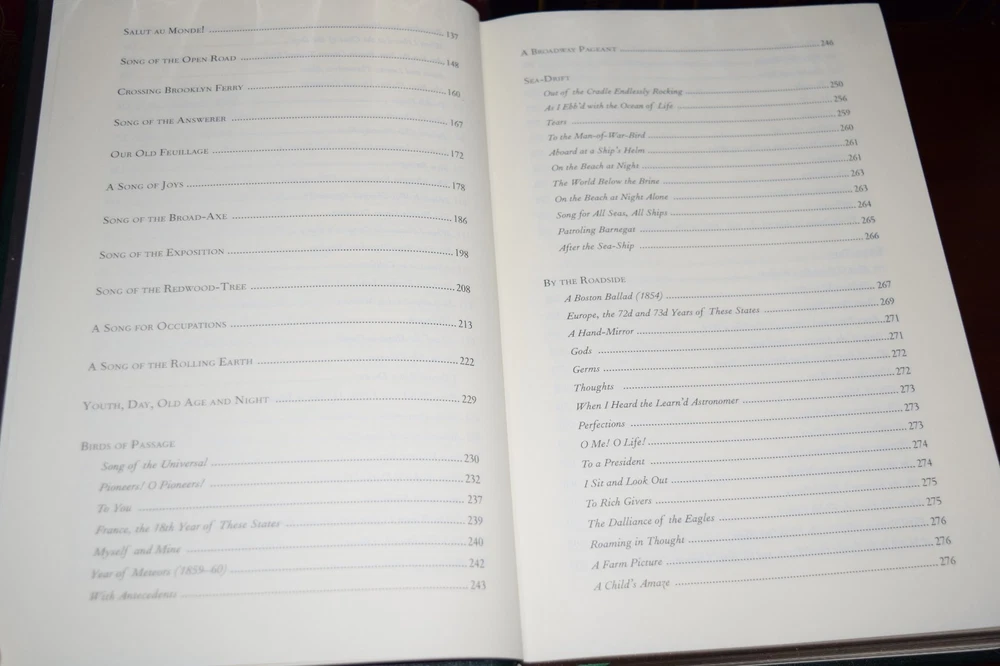 Salut au Monde! 137
Song of the Open Road 148
Crossing Brooklyn Ferry 160
Song of the Answerer 167
Our Old Feuillage 172
A Song of Joys 178
Song of the Broad-Axe 186
Song of the Exposition 198
Song of the Redwood-Tree 208
A Song for Occupations 213
A Song of the Rolling Earth 222
Youth, Day, Old Age and Night 229
Birds of Passage
Song of the Universal 230
Pioneers! O Pioneers! 232
To You 237
France, the 18th Year of These States 239
Myself and Mine 240
Year of Meteors (1859–60) 242
With Antecedents 243
A Broadway Pageant 246
Sea-Drift
Out of the Cradle Endlessly Rocking 250
As I Ebb'd with the Ocean of Life 256
Tears 259
To the Man-of-War-Bird 260
Aboard at a Ship's Helm 261
On the Beach at Night 261
The World Below the Brine 263
On the Beach at Night Alone 263
Song for All Seas, All Ships 264
Patroling Barnegat 265
After the Sea-Ship 266
By the Roadside
A Boston Ballad (1854) 267
Europe, the 72d and 73d Years of These States 269
A Hand-Mirror 271
Gods 271
Germs 272
Thoughts 272
When I Heard the Learn'd Astronomer 273
Perfections 273
O Me! O Life! 273
To a President 274
I Sit and Look Out 274
To Rich Givers 275
The Dalliance of the Eagles 275
Roaming in Thought 276
A Farm Picture 276
A Child's Amaze 276